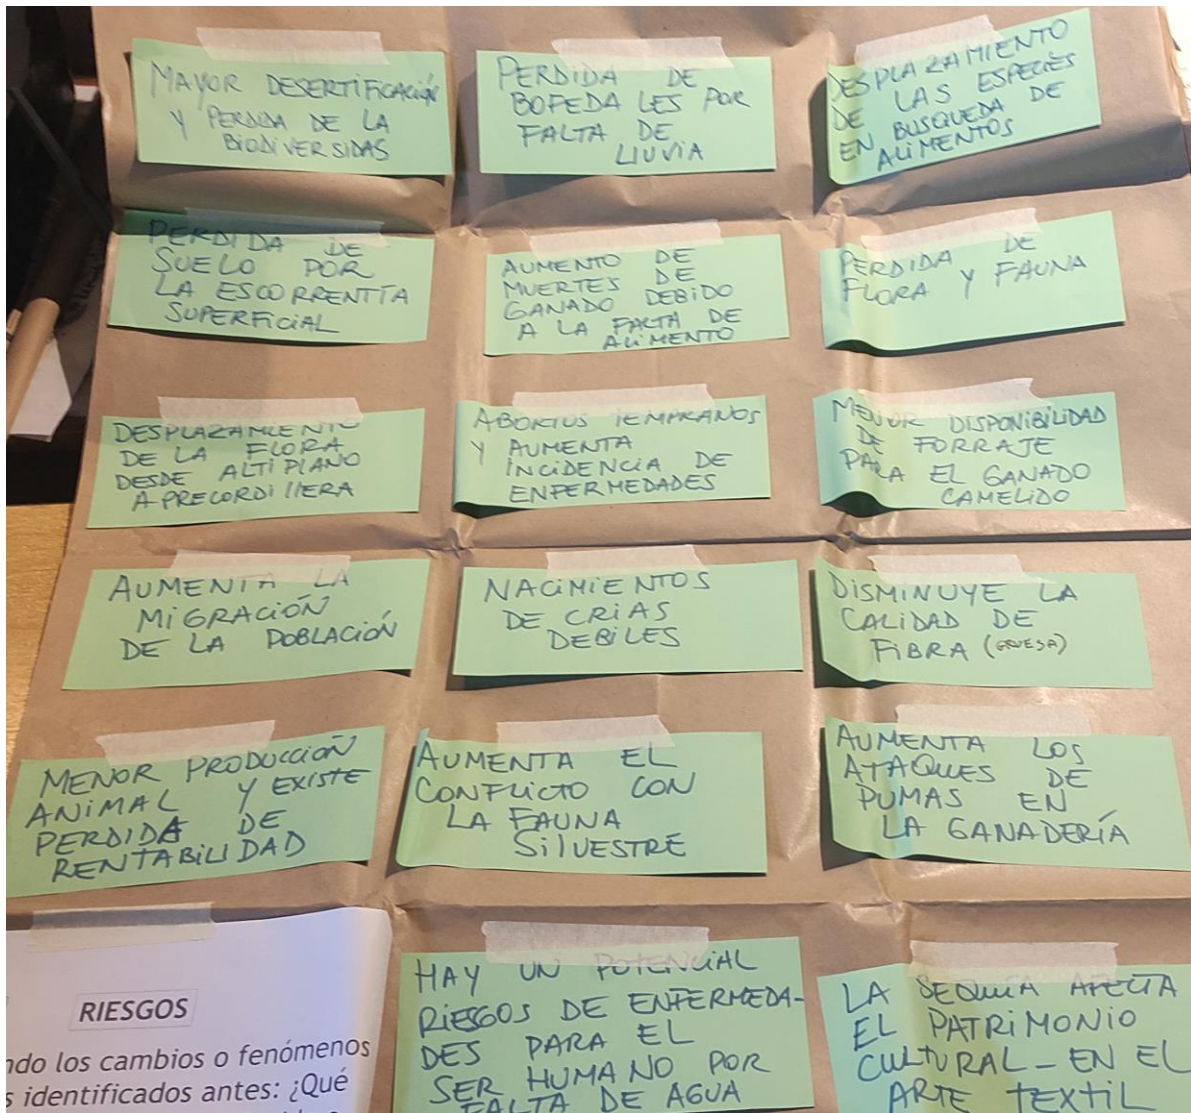 MAYOR DESERTIFICACIÓN
Y PERDIDA DE LA
BIODIVERSIDAS
PERDIDA DE
BOFEDALES POR
FALTA DE
LLUVIA
DESPLAZAMIENTO
DE LAS ESPECIES
EN BUSQUEDA DE
ALIMENTOS
PERDIDA DE
SUELO POR
LA ESCORRENTÍA
SUPERFICIAL
AUMENTO DE
MUERTES DE
GANADO DEBIDO
A LA FALTA DE
ALIMENTO
PERDIDA DE
FLORA Y FAUNA
DESPLAZAMIENTO
DE LA FLORA
DESDE ALTIPLANO
A PRECORDILLERA
ABORTOS TEMPRANOS
Y AUMENTA
INCIDENCIA DE
ENFERMEDADES
MENOR DISPONIBILIDAD
DE FORRAJE
PARA EL GANADO
CAMELIDO
AUMENTA LA
MIGRACIÓN
DE LA POBLACIÓN
NACIMIENTOS
DE CRIAS
DEBILES
DISMINUYE LA
CALIDAD DE
FIBRA (GRUESA)
MENOR PRODUCCIÓN
ANIMAL Y EXISTE
PERDIDA DE
RENTABILIDAD
AUMENTA EL
CONFLICTO CON
LA FAUNA
SILVESTRE
AUMENTA LOS
ATAQUES DE
PUMAS EN
LA GANADERÍA
RIESGOS
ndo los cambios o fenómenos
s identificados antes: ¿Qué
HAY UN POTENCIAL
RIESGOS DE ENFERMEDA-
DES PARA EL
SER HUMANO POR
FALTA DE AGUA
LA SEQUÍA AFECTA
EL PATRIMONIO
CULTURAL - EN EL
ARTE TEXTIL